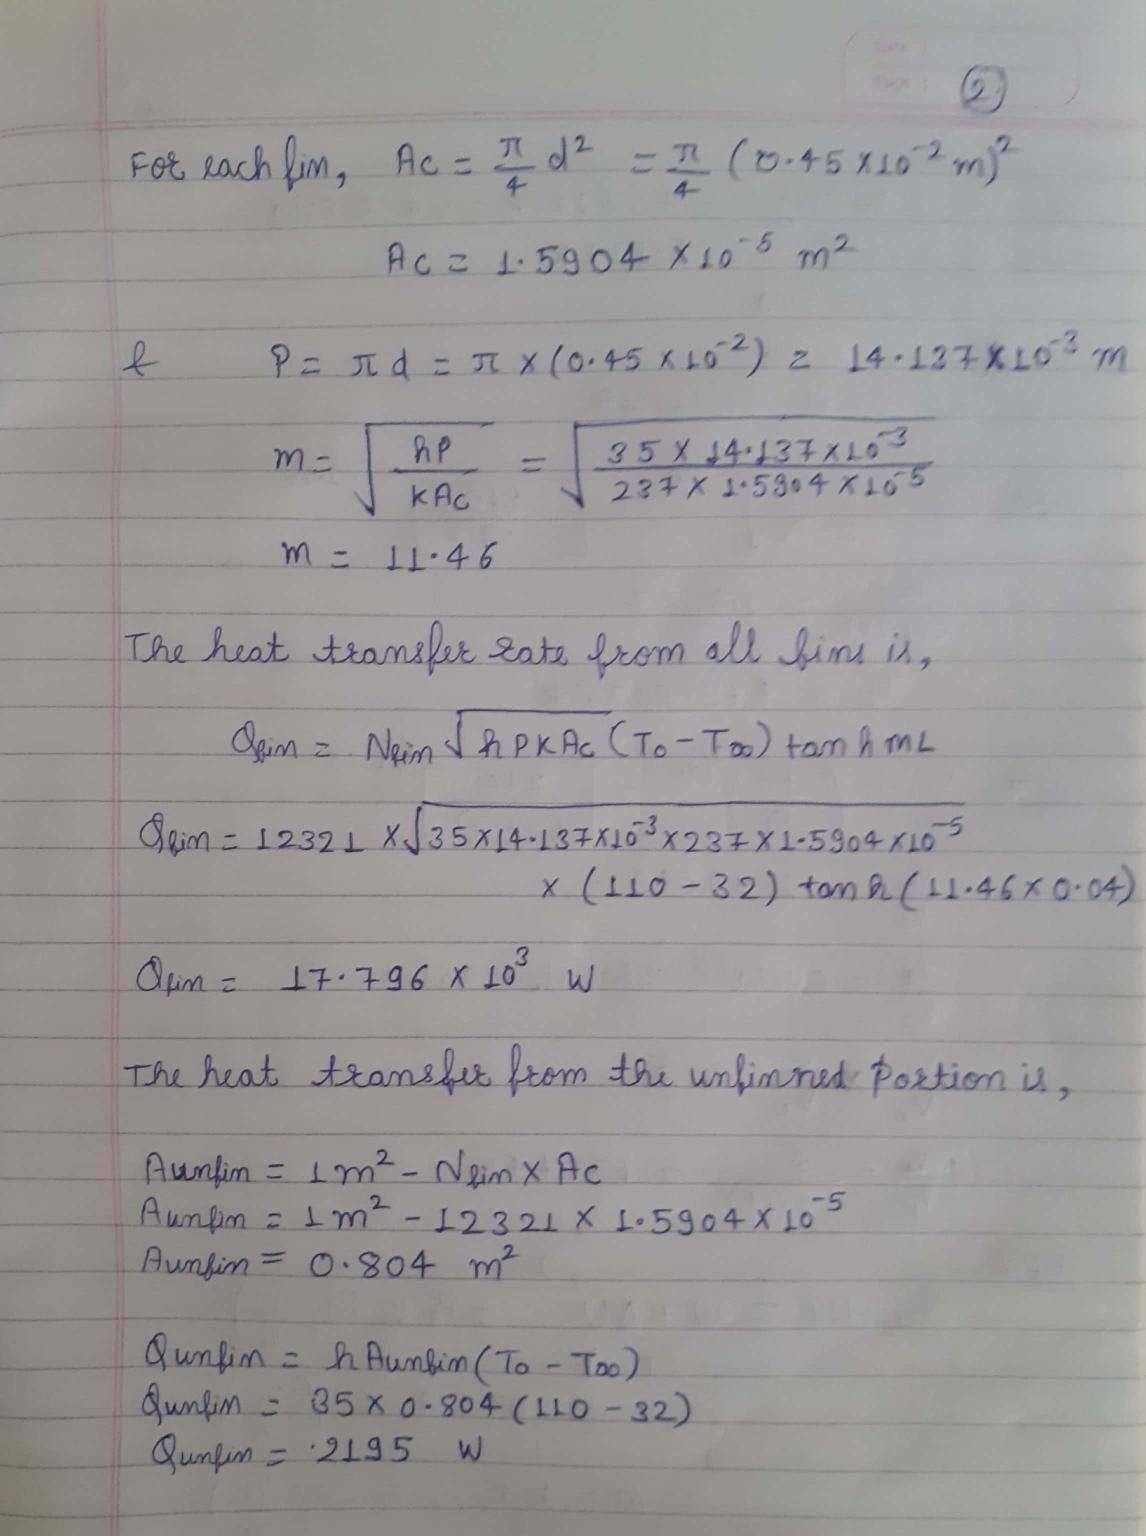 ②
For each fin, Ac = π/4 d² = π/4 (0.45 X10⁻² m)²
Ac = 1.5904 X10⁻⁵ m²
& P = πd = π X (0.45 X10⁻²) = 14.137X10⁻³ m
m = √(hP/KAc) = √(35 X 14.137X10⁻³/237 X 1.5904 X10⁻⁵)
m = 11.46
The heat transfer rate from all fins is,
Qfin = Nfin √hPKAc (To - T∞) tanh mL
Qfin = 12321 X√35X14.137X10⁻³X237X1.5904X10⁻⁵
X (110 - 32) tanh (11.46X0.04)
Qfin = 17.796 X 10³ W
The heat transfer from the unfinned portion is,
Aunfin = 1m² - Nfin X Ac
Aunfin = 1m² - 12321 X 1.5904X10⁻⁵
Aunfin = 0.804 m²
Qunfin = hAunfin(To - T∞)
Qunfin = 35X0.804(110 - 32)
Qunfin = 2195 W